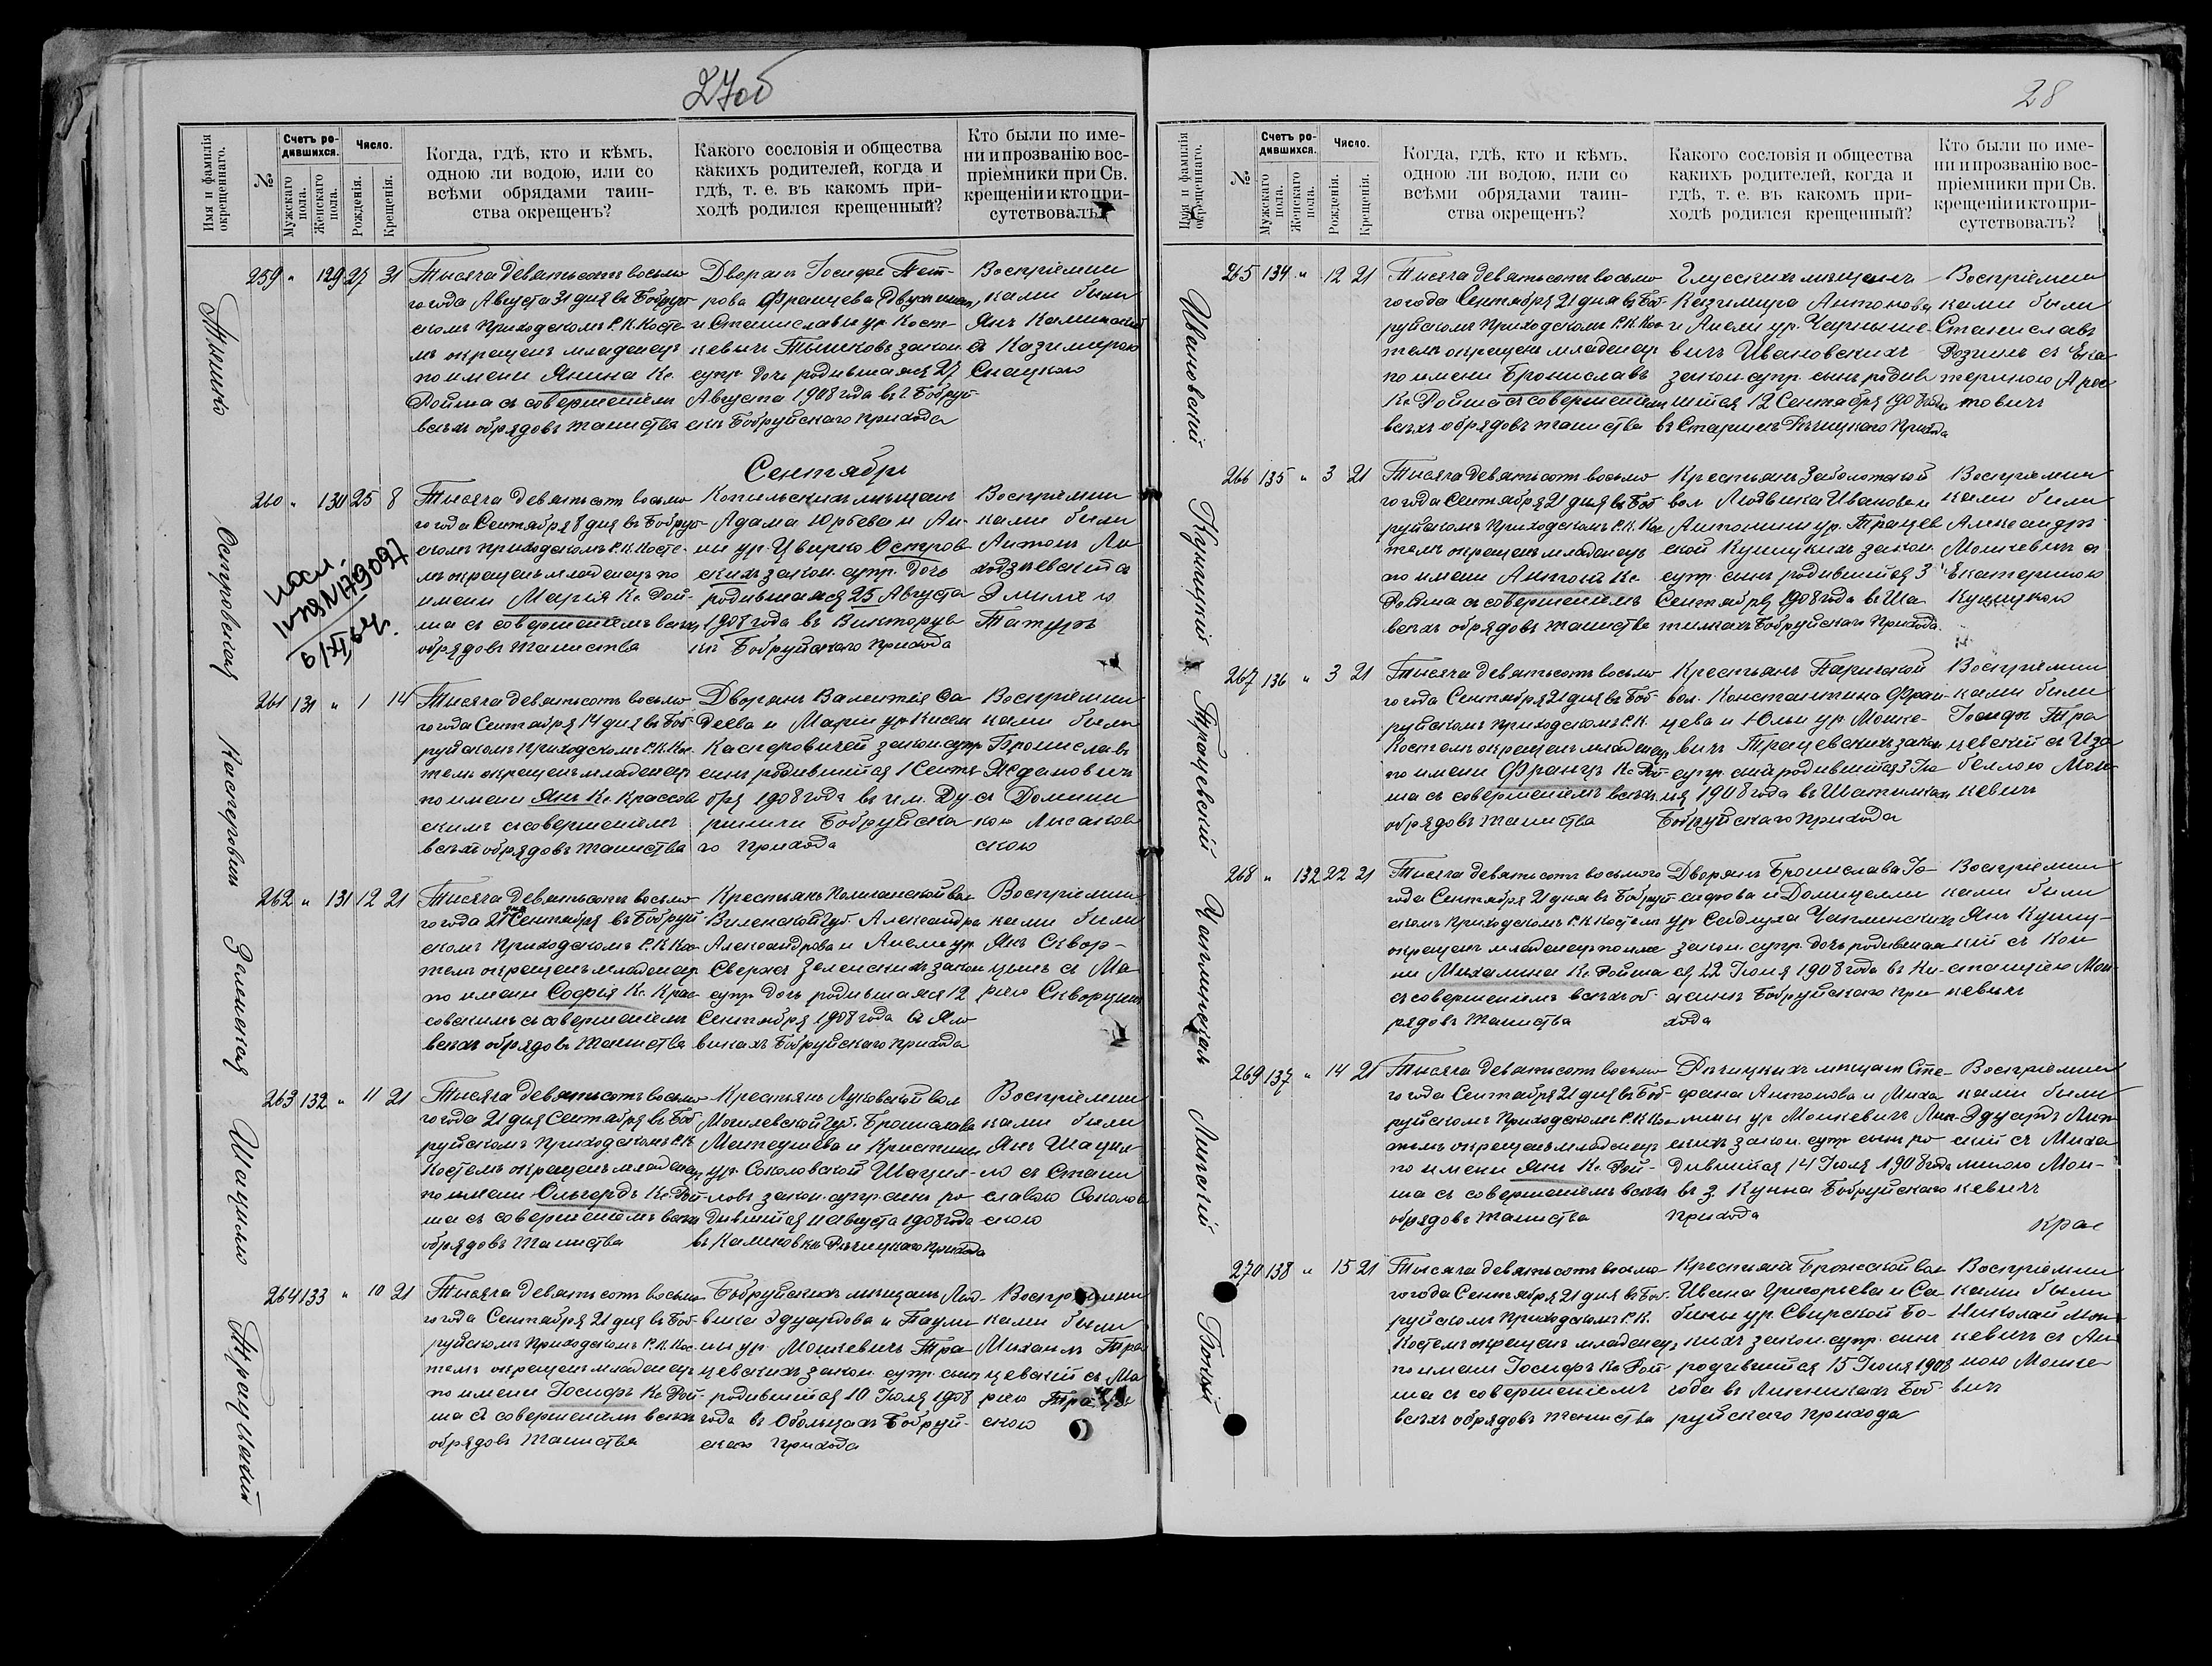 27об
Имя и фамилія окрещеннаго.
№
Счетъ родившихся.
Мужскаго пола.
Женскаго пола.
Число.
Рожденія.
Крещенія.
Когда, гдѣ, кто и кѣмъ,
одною ли водою, или со
всѣми обрядами таин-
ства окрещенъ?
Какого сословія и общества
какихъ родителей, когда и
гдѣ, т. е. въ какомъ при-
ходѣ родился крещенный?
Кто были по име-
ни и прозванію вос-
пріемники при Св.
крещеніи и кто при-
сутствовалъ?
259 " 129 27 31
Тысяча девятьсотъ восьмо
го года Августа 31 дня въ Бобруй
скомъ Приходскомъ Р. К. Косте
лѣ окрещенъ младенецъ
по имени Янина Кс.
Ройша съ совершеніемъ
всѣхъ обрядовъ таинства
Дворянъ Іосифа Пет-
рова Францева
и Станиславы ур. Кост-
кевичъ Тышковъ закон.
супр. дочь родившаяся 27
Августа 1908 года въ г. Бобруй
скѣ Бобруйскаго Прихода
Воспріемни
ками были
Янъ Калинскій
съ Казимирою
Снацкою
Сентябрь
260 " 130 25 8
Островская
Тысяча девятьсотъ восьмо
го года Сентября 8 дня въ Бобруй
скомъ Приходскомъ Р. К. Косте-
лѣ окрещенъ младенецъ по
имени Марія Кс. Рой-
ша съ совершеніемъ всѣхъ
обрядовъ таинства
Копыльскихъ мѣщанъ
Адама Юрьева и Ан-
ны ур. Цвирко Остров
скихъ закон. супр. дочь
родившаяся 25 Августа
1908 года въ Викторув
кѣ Бобруйскаго Прихода
Воспріемни
ками были
Антонъ Ли
ходзіевскій съ
Эмиліею
Татуръ
261 131 " 1 14
Касперовичъ
Тысяча девятьсотъ восьмо
го года Сентября 14 дня въ Боб
руйскомъ Приходскомъ Р. К. Кос
телѣ окрещенъ младенецъ
по имени Янъ Кс. Крассов
скимъ съ совершеніемъ
всѣхъ обрядовъ таинства
Дворянъ Валентія Фа
деева и Маріи ур. Кисель
Касперовичей закон. супр.
сынъ родившійся 1 Сентя
бря 1908 года въ им. Ду
риничи Бобруйска
го Прихода
Воспріемни
ками были
Брониславъ
Ждановичъ
съ Домини
кою Лисаков
скою
262 " 131 12 21
Зеленская
Тысяча девятьсотъ восьмо
го года 21 дня Сентября въ Бобруй
скомъ Приходскомъ Р. К. Кос
телѣ окрещенъ младенецъ
по имени Софія Кс. Крас
совскимъ съ совершеніемъ
всѣхъ обрядовъ таинства
Виленской губ. Александра
Александрова и Анели ур.
Свержъ Зеленскихъ закон
супр. дочь родившаяся 12
Сентября 1908 года въ Яло
викахъ Бобруйскаго Прихода
Воспріемни
ками были
Янъ Сквор-
цынъ съ Ма
ріею Скворцынъ
263 132 " 11 21
Шацилло
Тысяча девятьсотъ восьмо
го года 21 дня Сентября въ Боб
руйскомъ Приходскомъ Р. К.
Костелѣ окрещенъ младенецъ
по имени Ольгердъ Кс. Рой
ша съ совершеніемъ всѣхъ
обрядовъ таинства
Крестьянъ Луковской вол
Могилевской губ. Бронислава
Матеушева и Кристины
ур. Соколовской Шацил-
ловъ закон. супр. сынъ ро
дившійся 11 Августа 1908 года
въ Калиновкѣ Рѣчицкаго Прихода
Воспріемни
ками были
Янъ Шацил
ло съ Стани
славою Соколов
скою
264 133 " 10 21
Трацевскій
Тысяча девятьсотъ восьмо
го года Сентября 21 дня въ Боб-
руйскомъ Приходскомъ Р. К. Кос
телѣ окрещенъ младенецъ
по имени Іосифъ Кс. Рой
ша съ совершеніемъ всѣхъ
обрядовъ таинства
Бобруйскихъ мѣщанъ Люд-
вика Эдуардова и Паули
ны ур. Мошкевичъ Тра-
цевскихъ закон. супр. сынъ
родившійся 10 Іюля 1908
года въ Обольцахъ Бобруй-
скаго Прихода
Воспріемни
ками были
Михаилъ Тра
цевскій съ Ма
ріею Трацев
скою
28
Имя и фамилія окрещеннаго.
№
Счетъ родившихся.
Мужскаго пола.
Женскаго пола.
Число.
Рожденія.
Крещенія.
Когда, гдѣ, кто и кѣмъ,
одною ли водою, или со
всѣми обрядами таин-
ства окрещенъ?
Какого сословія и общества
какихъ родителей, когда и
гдѣ, т. е. въ какомъ при-
ходѣ родился крещенный?
Кто были по име-
ни и прозванію вос-
пріемники при Св.
крещеніи и кто при-
сутствовалъ?
265 134 " 12 21
Ивановскій
Тысяча девятьсотъ восьмо
го года Сентября 21 дня въ Боб
руйскомъ Приходскомъ Р. К. Кос
телѣ окрещенъ младенецъ
по имени Брониславъ
Кс. Ройша съ совершеніемъ
всѣхъ обрядовъ таинства
Глусскихъ мѣщанъ
Казимира Антонова
и Анели ур. Чарныше-
вичъ Ивановскихъ
закон. супр. сынъ родив
шійся 12 Сентября 1908 года
въ Старинѣ Рѣчицкаго Прихода
Воспріемни
ками были
Станиславъ
Розинъ съ Ека
териною Арос
товичъ
266 135 " 3 21
Куницкій
Тысяча девятьсотъ восьмо
го года Сентября 21 дня въ Боб
руйскомъ Приходскомъ Р. К. Кос
телѣ окрещенъ младенецъ
по имени Антонъ Кс.
Ройша съ совершеніемъ
всѣхъ обрядовъ таинства
Крестьянъ Заболотской
вол. Людвика Иванова и
Антонины ур. Трацев
ской Куницкихъ закон.
супр. сынъ родившійся 3
Сентября 1908 года въ Ша
тилкахъ Бобруйскаго Прихода
Воспріемни
ками были
Александръ
Мошкевичъ съ
Екатериною
Куницкою
267 136 " 3 21
Трацевскій
Тысяча девятьсотъ восьмо
го года Сентября 21 дня въ Боб-
руйскомъ Приходскомъ Р. К.
Костелѣ окрещенъ младенецъ
по имени Францъ Кс. Рой
ша съ совершеніемъ всѣхъ
обрядовъ таинства
Крестьянъ Паричской
вол. Константина Фран
цева и Юльи ур. Мошке-
вичъ Трацевскихъ закон
супр. сынъ родившійся 3 Ію
ля 1908 года въ Шатилкахъ
Бобруйскаго Прихода
Воспріемни
ками были
Іосифъ Тра
цевскій съ Иза
беллою Мош
кевичъ
268 " 132 22 21
Чаплинская
Тысяча девятьсотъ восьмого
года Сентября 21 дня въ Бобруй
скомъ Приходскомъ Р. К. Костелѣ
окрещенъ младенецъ по име
ни Михалина Кс. Ройша
съ совершеніемъ всѣхъ об-
рядовъ таинства
Дворянъ Бронислава Іо-
сифова и Домицелли
ур. Садлуха Чаплинскихъ
закон. супр. дочь родившая
ся 22 Іюня 1908 года въ
Бобруйскаго При
хода
Воспріемни
ками были
Янъ Куниц-
кій съ Кон
станціею Мош
кевичъ
269 137 " 14 21
Липскій
Тысяча девятьсотъ восьмо
го года Сентября 21 дня въ Боб-
руйскомъ Приходскомъ Р. К. Кос
телѣ окрещенъ младенецъ
по имени Янъ Кс. Рой-
ша съ совершеніемъ всѣхъ
обрядовъ таинства
Рѣчицкихъ мѣщанъ Сте-
фана Антонова и Миха
лины ур. Мошкевичъ Лип-
скихъ закон. супр. сынъ ро
дившійся 14 Іюля 1908 года
въ з. Кунна Бобруйскаго
Прихода
Воспріемни
ками были
Эдуардъ Лип
скій съ Миха
линою Мош-
кевичъ
270 138 " 15 21
Тысяча девятьсотъ восьмо
го года Сентября 21 дня въ Боб.
руйскомъ Приходскомъ Р. К.
Костелѣ окрещенъ младенецъ
по имени Іосифъ Кс. Рой
ша съ совершеніемъ
всѣхъ обрядовъ таинства
Ивана Григорьева и Са
бины ур. Свирской Бо-
кихъ закон. супр. сынъ
родившійся 15 Іюня 1908
года въ Линникахъ Боб-
руйскаго Прихода
Воспріемни
ками были
Николай Мош
кевичъ съ Ан
ною Мошке
вичъ